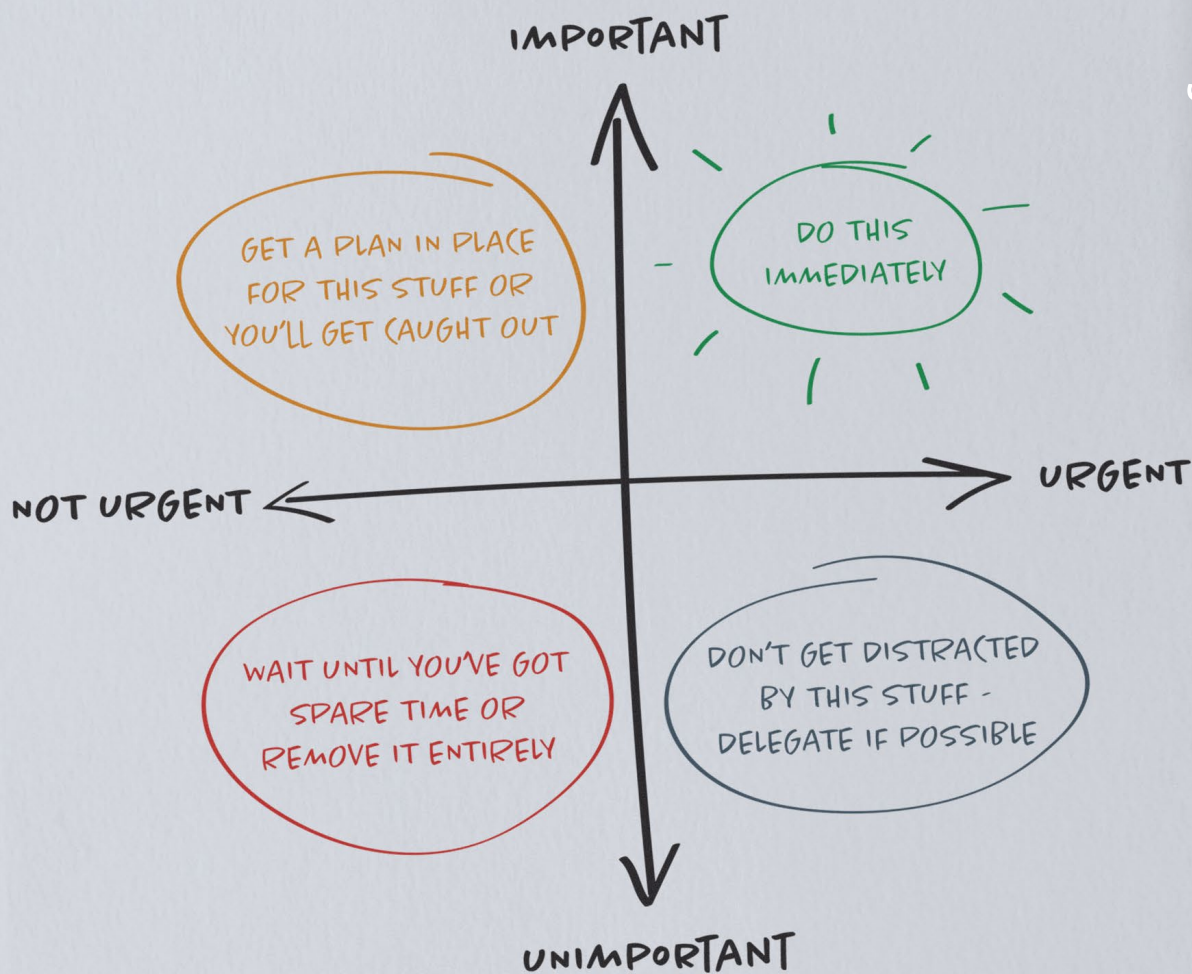 IMPORTANT
GET A PLAN IN PLACE
FOR THIS STUFF OR
YOU'LL GET CAUGHT OUT
DO THIS
IMMEDIATELY
NOT URGENT
URGENT
WAIT UNTIL YOU'VE GOT
SPARE TIME OR
REMOVE IT ENTIRELY
DON'T GET DISTRACTED
BY THIS STUFF -
DELEGATE IF POSSIBLE
UNIMPORTANT